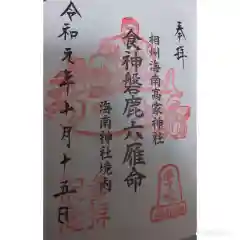 奉拝
相州海南高家神社
食神磐鹿六雁命
海南神社境内
令和元年十月十五日